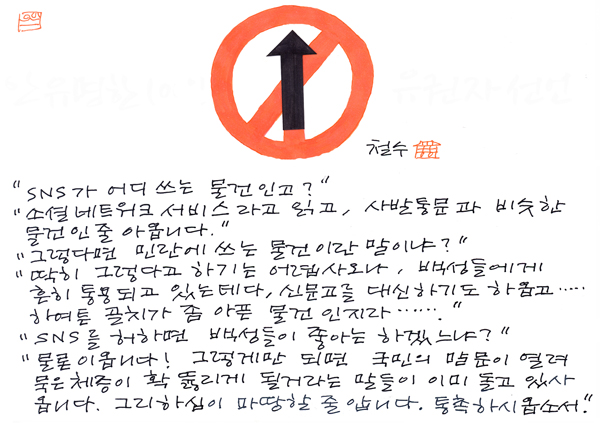 철수
"SNS가 어디 쓰는 물건인고?"
"소셜네트워크 서비스라고 읽고, 사발통문과 비슷한
물건인 줄 아옵니다."
"그렇다면 민란에 쓰는 물건이란 말이냐?"
"딱히 그렇다고 하기는 어렵사오나, 백성들에게
흔히 통용되고 있는데다, 신문고를 대신하기도 하옵고.....
하여튼 골치가 좀 아픈 물건인지라......."
"SNS를 허하면 백성들이 좋아는 하겠느냐?"
"물론이옵니다! 그렇게만 되면 국민의 맘문이 열려
묵은 체증이 확 뚫리게 될거라는 말들이 이미 돌고 있사
옵니다. 그리하심이 마땅할 줄 압니다. 통촉하시옵소서."